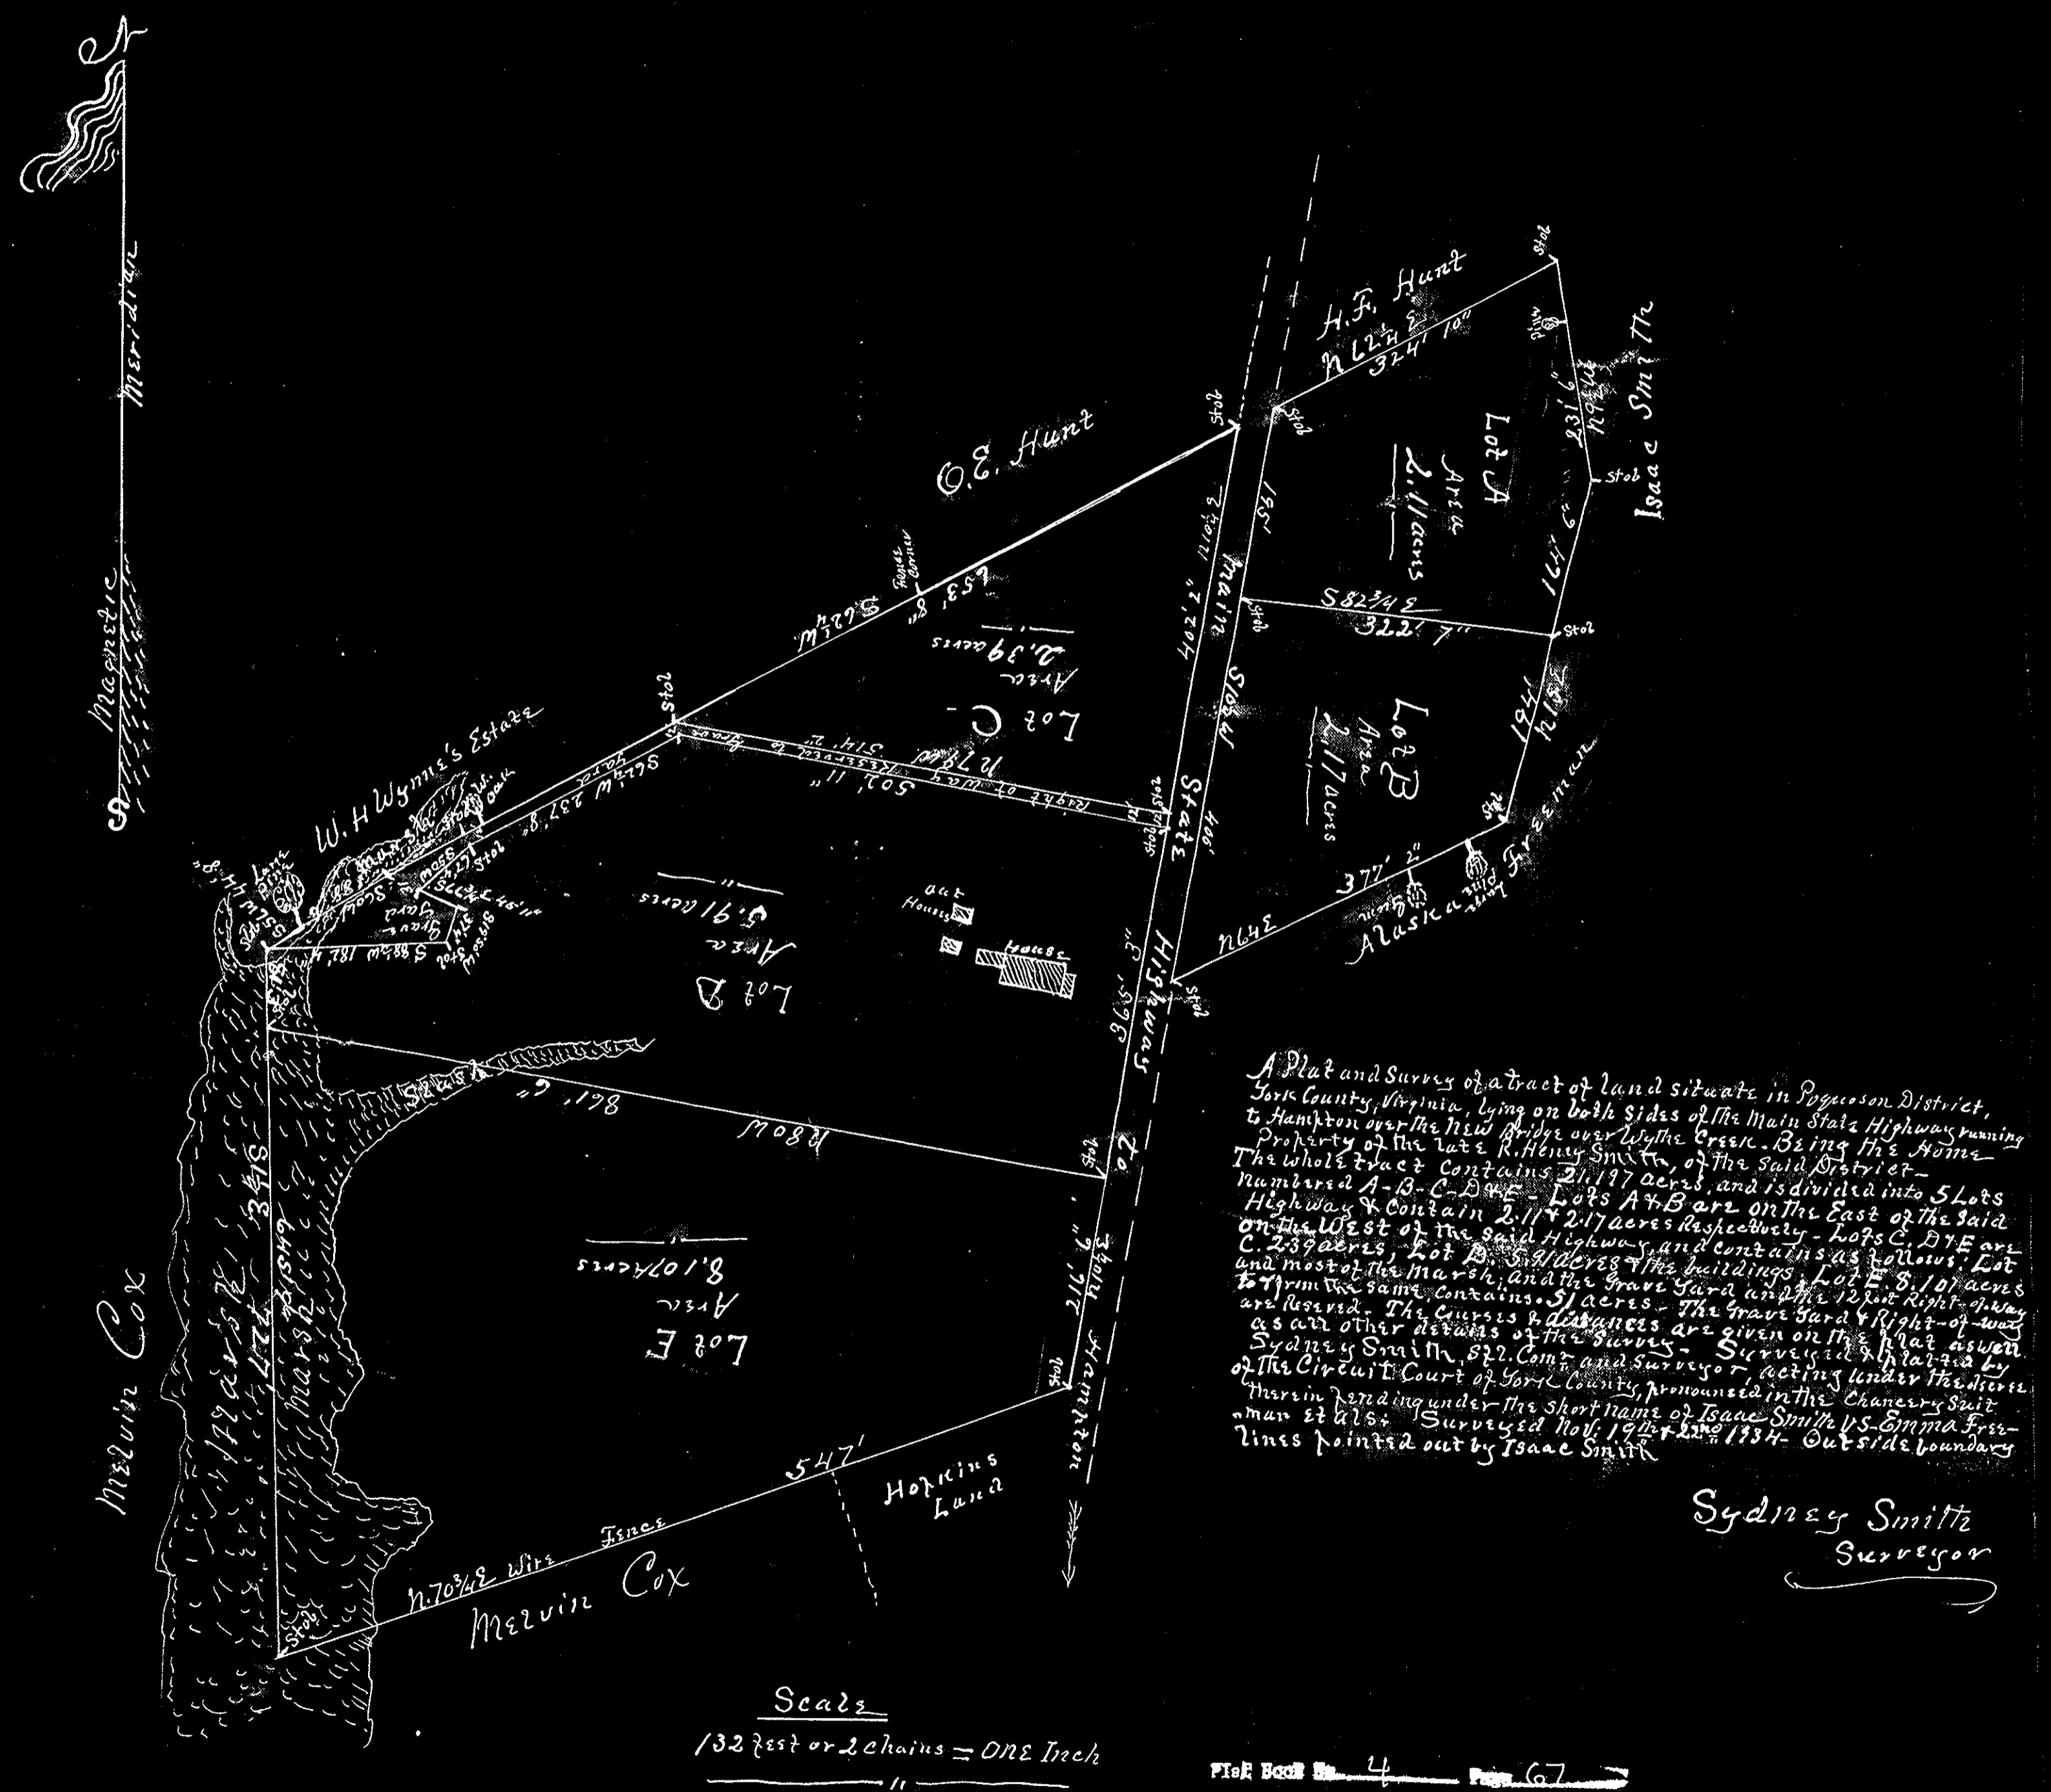 N
Magnetic Meridian
S
H.F. Hunt
N 62 1/4 E
324' 10"
Stob
Stob
231' 6"
N9W
Isaac Smith
Stob
Lot A
Area
2.11 acres
195'
O.E. Hunt
Stob
Fence
Corner
S62 1/4 W
653' 8"
S 82 3/4 E
322' 7"
Stob
Stob
Lot B
Area
2.17 acres
406'
S10 1/2 W
Stob
Alaska Freeman
Large
Pine
Gum
377' 2"
N64E
Stob
Lot C
Area
2.39 acres
Stob
N79W
514' 2"
Right of Way Reserved to Grave Yard
502' 11"
12'
Stob
Stob
S62 1/4 W 237' 8"
W.H Wynne's Estate
Marsh
Stob
Grave
Yard
Stob
Pine
House
Houses
Lot D
Area
5.91 acres
Stob
Slash
861' 6"
N80W
Stob
Main State Highway to Hampton
Lot E
Area
8.107 acres
Stob
547'
Hopkins
Land
N.70 3/4 E Wire Fence
Melvin Cox
Melvin Cox
Marsh
Stob
A Plat and Survey of a tract of land situate in Poquoson District,
York County, Virginia, lying on both sides of the Main State Highway running
to Hampton over the New Bridge over Wythe Creek. Being the Home
Property of the late R. Henry Smith, of the said District-
The whole tract contains 21.197 acres, and is divided into 5 Lots
numbered A-B-C-D & E - Lots A & B are on the East of the said
Highway & Contain 2.11 & 2.17 acres Respectively - Lots C. D & E are
on the West of the said Highway, and contains as follows: Lot
C. 2.39 acres, Lot D. 5.91 acres & the buildings, Lot E. 8.107 acres
and most of the Marsh, and the Grave Yard and the 12 foot Right-of-way
to & from the same contains .51 acres - The Grave Yard & Right-of-way
are Reserved - The Courses & distances are given on the Plat as well
as all other details of the Survey - Surveyed & platted by
Sydney Smith, Spl. Comr and Surveyor, acting under the decree
of the Circuit Court of York County, pronounced in the Chancery Suit
therein pending under the short name of Isaac Smith vs. Emma Free-
-man et als: Surveyed Nov: 19th & 22nd 1934 - Outside boundary
lines pointed out by Isaac Smith
Sydney Smith
Surveyor
Scale
132 feet or 2 chains = One Inch
Plat Book No. 4 Page 67